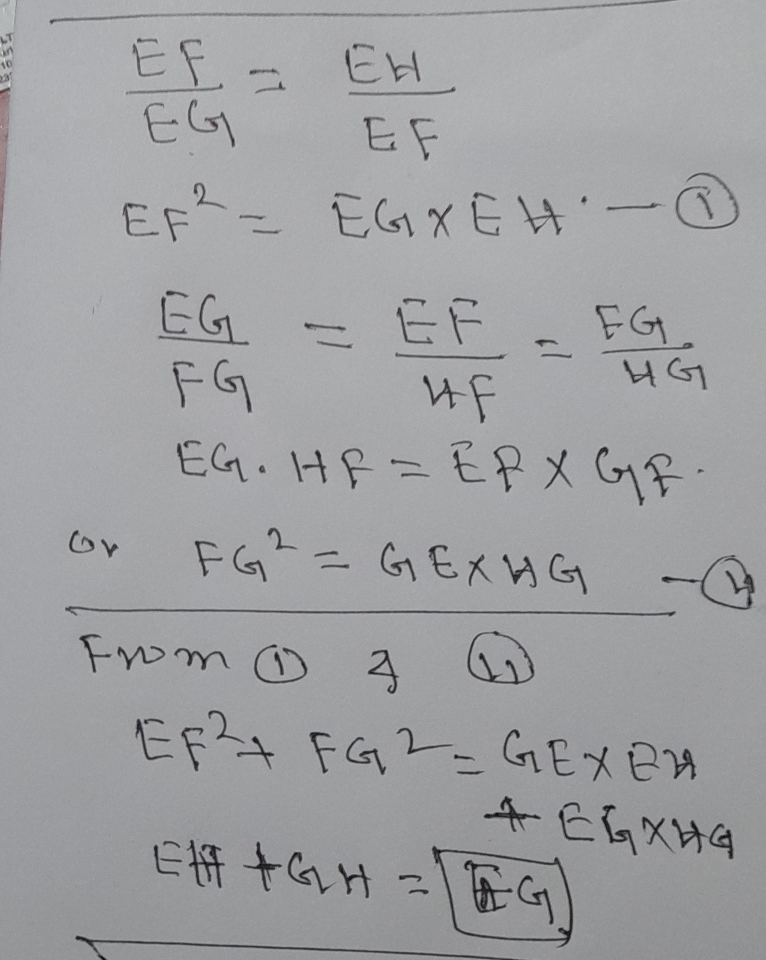 EF/EG = EH/EF
EF² = EG × EH · — ①
EG/FG = EF/HF = FG/HG
EG. HF = EF × GF.
or FG² = GE × HG — ⑪
From ① & ⑪
EF² + FG² = GE × EH
+ EG × HG
EH + GH = EG